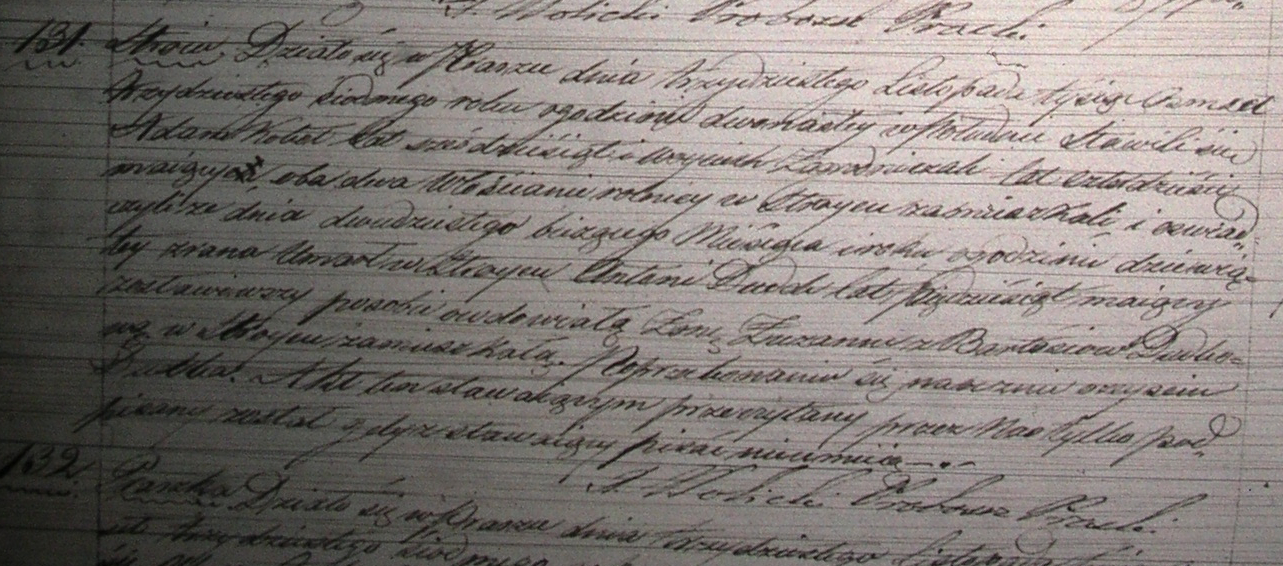 J. Wolicki Proboszcz Pracki
131. Stroiec. Działo się w Praszce dnia trzydziestego Listopada tysiąc ośmset
trzydziestego siodmego roku o godzinie dwunastey w południe Stawili się
Adam Kobat lat sześćdziesiąt i Woyciech lat czterdzieści
maiący, obadwa Włościanie rolnicy w Stroycu zamieszkali, i oświad„
czyli że dnia dwudziestego bieżącego Miesiąca i roku o godzinie dziewią„
tey zrana Umarł w Stroycu Antoni Duda lat pięćdziesiąt maiący
zostawiwszy po sobie owdowiałą Żonę Zuzannę z Bartosiow Dudo„
wą w Stroycu zamieszkałą. Po przekonaniu się naocznie o zejściu
Akt ten stawaiącym przeczytany przez Nas tylko pod„
pisany został gdyż stawaiący pisać nieumieią
J. Wolicki Proboszcz Pracki.
132. Praszka Działo się w Praszce dnia trzydziestego Listopada
set trzydziestego siodmego